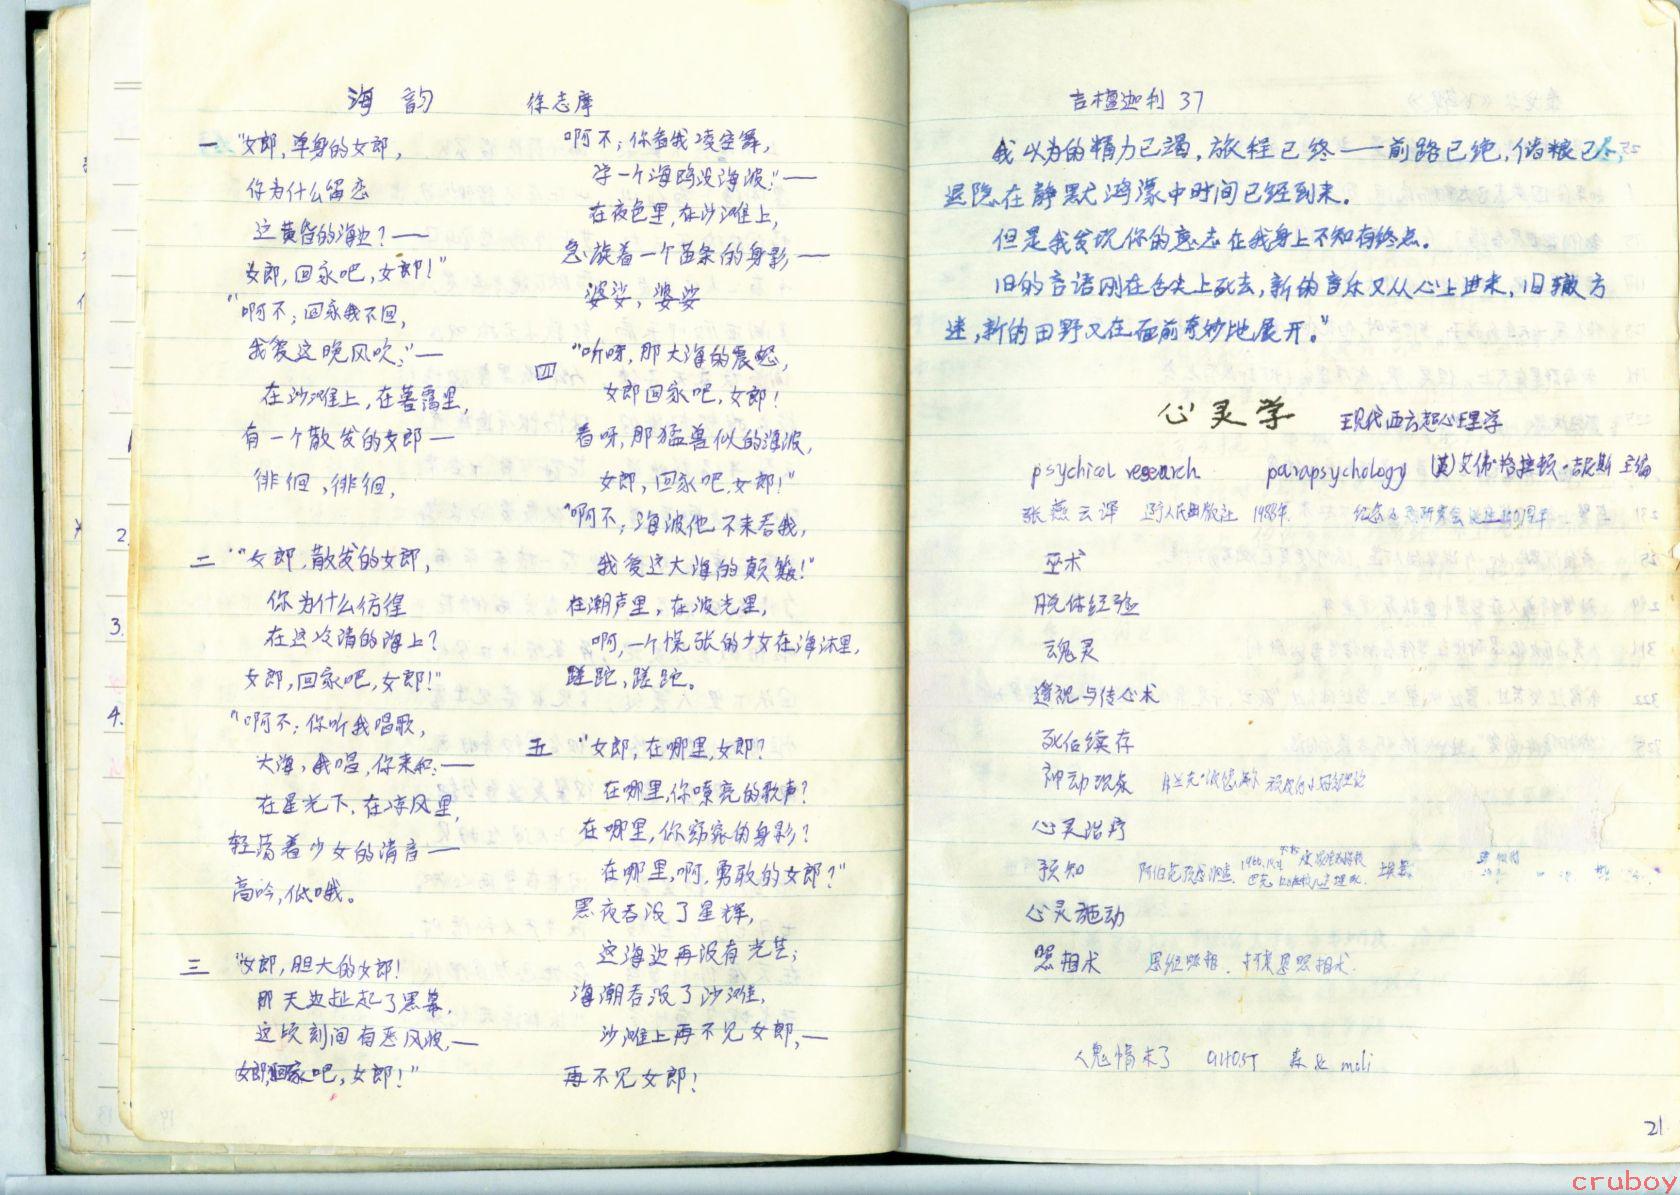 海韵 徐志摩
一 "女郎,单身的女郎,
你为什么留恋
这黄昏的海边?——
女郎,回家吧,女郎!"
"啊不;回家我不回,
我爱这晚风吹;"—
在沙滩上,在暮霭里,
有一个散发的女郎—
徘徊,徘徊,
二 "女郎,散发的女郎,
你为什么彷徨
在这冷清的海上?
女郎,回家吧,女郎!"
"啊不;你听我唱歌,
大海,我唱,你来和;—
在星光下,在凉风里,
轻荡着少女的清音—
高吟,低哦。
三 "女郎,胆大的女郎!
那天边扯起了黑幕,
这顷刻间有恶风波,—
女郎,回家吧,女郎!"
啊不;你看我凌空舞,
学一个海鸥没海波:"—
在夜色里,在沙滩上,
急旋着一个苗条的身影—
婆娑,婆娑
四 "听呀,那大海的震怒,
女郎回家吧,女郎!
看呀,那猛兽似的海波,
女郎,回家吧,女郎!"
"啊不;海波他不来吞我,
我爱这大海的颠簸!"
在潮声里,在波光里,
啊,一个慌张的少女在海沫里,
蹉跎,蹉跎。
五 "女郎,在哪里,女郎?
在哪里,你嘹亮的歌声?
在哪里,你窈窕的身影?
在哪里,啊,勇敢的女郎?"
黑夜吞没了星辉,
这海边再没有光芒;
海潮吞没了沙滩,
沙滩上再不见女郎,—
再不见女郎!
吉檀迦利 37
我以为的精力已竭,旅程已终——前路已绝,储粮已尽,
退隐在静默鸿濛中时间已经到来。
但是我发现你的意志在我身上不知有终点。
旧的言语刚在舌尖上死去,新的音乐又从心上迸来,旧辙方
迷,新的田野又在面前奇妙地展开。"
心灵学 现代西方超心理学
psychical research parapsychology (英)艾佛·格拉顿·吉尼斯 主编
张燕云译 辽宁人民出版社 1988年.
巫术
脱体经验
魂灵
透视与传心术
死后续存
神动现象
心灵治疗
预知
心灵驱动
照相术 思维照相.
人鬼情未了 GHOST 森 & moli
21
cruboy